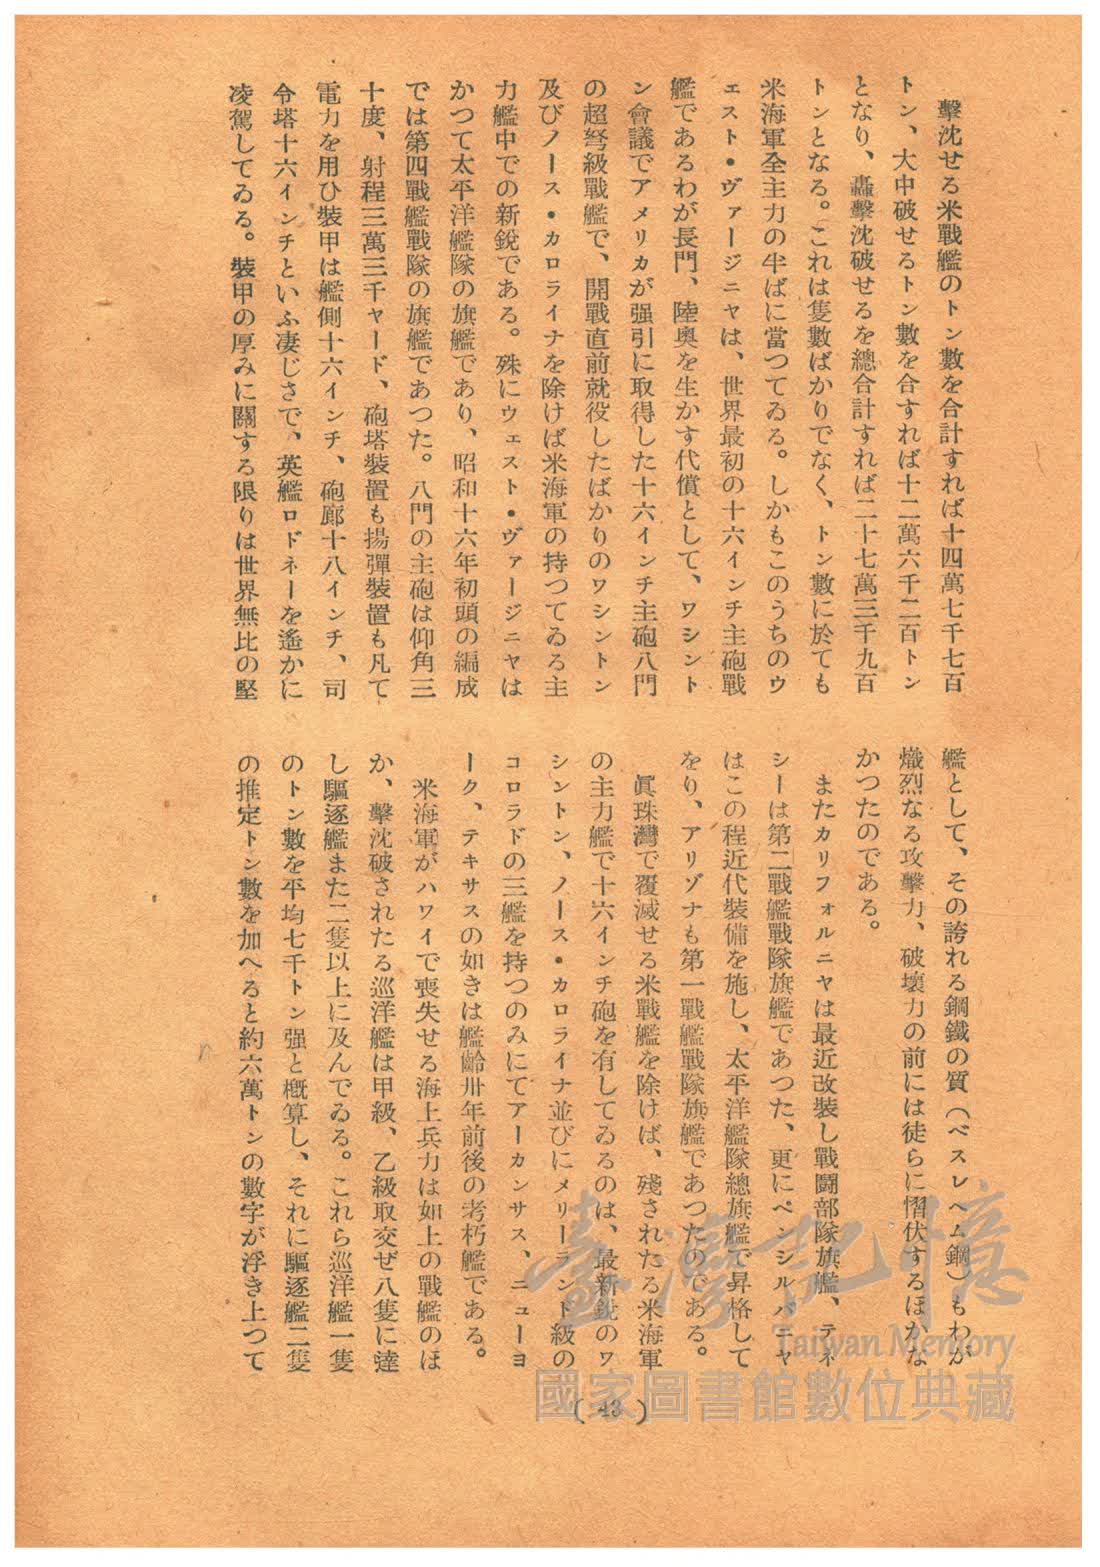 擊沈せる米戰艦のトン數を合計すれば十四萬七千七百
トン、大中破せるトン數を合すれば十二萬六千二百トン
となり、轟擊沈破せるを總合計すれば二十七萬三千九百
トンとなる。これは隻數ばかりでなく、トン數に於ても
米海軍全主力の半ばに當つてゐる。しかもこのうちのウ
ェスト・ヴァージニヤは、世界最初の十六インチ主砲戰
艦であるわが長門、陸奧を生かす代償として、ワシント
ン會議でアメリカが强引に取得した十六インチ主砲八門
の超弩級戰艦で、開戰直前就役したばかりのワシントン
及びノース・カロライナを除けば米海軍の持つてゐる主
力艦中での新銳である。殊にウェスト・ヴァージニヤは
かつて太平洋艦隊の旗艦であり、昭和十六年初頭の編成
では第四戰艦戰隊の旗艦であつた。八門の主砲は仰角三
十度、射程三萬三千ヤード、砲塔裝置も揚彈裝置も凡て
電力を用ひ裝甲は艦側十六インチ、砲廓十八インチ、司
令塔十六インチといふ凄じさで、英艦ロドネーを遙かに
凌駕してゐる。裝甲の厚みに關する限りは世界無比の堅
艦として、その誇れる鋼鐵の質(ベスレヘム鋼)もわが
熾烈なる攻擊力、破壞力の前には徒らに慴伏するほかな
かつたのである。
またカリフォルニヤは最近改裝し戰鬪部隊旗艦、テネ
シーは第二戰艦戰隊旗艦であつた、更にペンシルバニヤ
はこの程近代裝備を施し、太平洋艦隊總旗艦で昇格して
をり、アリゾナも第一戰艦戰隊旗艦であつたのである。
眞珠灣で覆滅せる米戰艦を除けば、殘されたる米海軍
の主力艦で十六インチ砲を有してゐるのは、最新銳のワ
シントン、ノース・カロライナ並びにメリーランド級の
コロラドの三艦を持つのみにてアーカンサス、ニューヨ
ーク、テキサスの如きは艦齡卅年前後の老朽艦である。
米海軍がハワイで喪失せる海上兵力は如上の戰艦のほ
か、擊沈破されたる巡洋艦は甲級、乙級取交ぜ八隻に達
し驅逐艦また二隻以上に及んでゐる。これら巡洋艦一隻
のトン數を平均七千トン强と槪算し、それに驅逐艦二隻
の推定トン數を加へると約六萬トンの數字が浮き上つて
( 43 )
臺灣記憶
Taiwan Memory
國家圖書館數位典藏